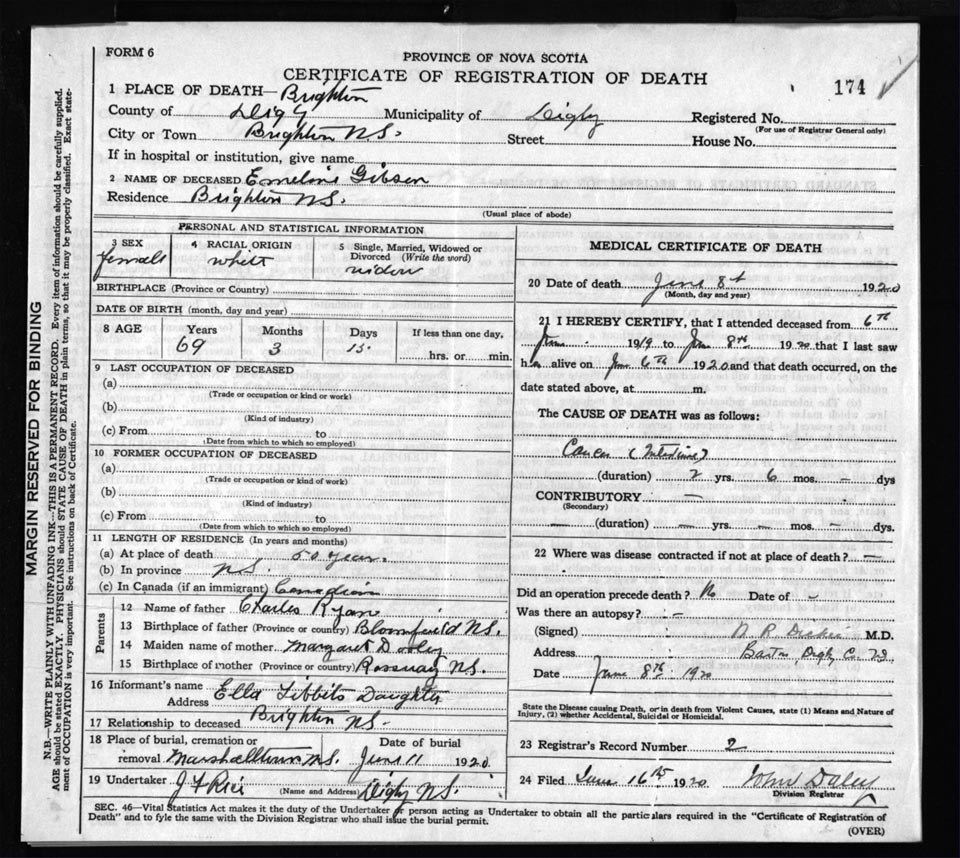 FORM 6
PROVINCE OF NOVA SCOTIA
CERTIFICATE OF REGISTRATION OF DEATH
174
1 PLACE OF DEATH— Brighton
County of Digby Municipality of Digby Registered No.
(For use of Registrar General only)
City or Town Brighton N.S. Street House No.
If in hospital or institution, give name
2 NAME OF DECEASED Emeline Gibson
Residence Brighton N.S.
(Usual place of abode)
PERSONAL AND STATISTICAL INFORMATION
3 SEX 4 RACIAL ORIGIN 5 Single, Married, Widowed or Divorced (Write the word)
female white widow
BIRTHPLACE (Province or Country)
DATE OF BIRTH (month, day and year)
8 AGE Years Months Days If less than one day,
69 3 15 hrs. or min.
9 LAST OCCUPATION OF DECEASED
(a)
(Trade or occupation or kind or work)
(b)
(Kind of industry)
(c) From to
(Date from which to which so employed)
10 FORMER OCCUPATION OF DECEASED
(a)
(Trade or occupation or kind of work)
(b)
(Kind of industry)
(c) From to
(Date from which to which so employed)
11 LENGTH OF RESIDENCE (In years and months)
(a) At place of death 50 years
(b) In province N.S.
(c) In Canada (if an immigrant) Canadian
Parents
12 Name of father Charles Ryan
13 Birthplace of father (Province or country) Bloomfield N.S.
14 Maiden name of mother Margaret
15 Birthplace of mother (Province or country) Rossway N.S.
16 Informant's name Ella Tibbits Daughter
Address Brighton N.S.
17 Relationship to deceased
18 Place of burial, cremation or removal Marshalltown N.S. Date of burial June 11 1920
19 Undertaker J F Rice Digby N.S.
(Name and Address)
MEDICAL CERTIFICATE OF DEATH
20 Date of death June 8t 1920
(Month, day and year)
21 I HEREBY CERTIFY, that I attended deceased from 6th
June 1919 to June 8th 1920 that I last saw
h alive on June 6th 1920 and that death occurred, on the
date stated above, at m.
The CAUSE OF DEATH was as follows:
Cancer (Intestines)
(duration) 2 yrs. 6 mos. — dys
CONTRIBUTORY —
(Secondary)
— (duration) — yrs. — mos. — dys.
22 Where was disease contracted if not at place of death? —
Did an operation precede death? No Date of —
Was there an autopsy? —
(Signed) M.D.
Address Barton, Digby Co. N.S.
Date June 8th 1920
State the Disease causing Death, or in death from Violent Causes, state (1) Means and Nature of
Injury, (2) whether Accidental, Suicidal or Homicidal.
23 Registrar's Record Number 2
24 Filed June 16th 1920 John Daley
Division Registrar
SEC. 46—Vital Statistics Act makes it the duty of the Undertaker or person acting as Undertaker to obtain all the particulars required in the "Certificate of Registration of
Death" and to fyle the same with the Division Registrar who shall issue the burial permit.
(OVER)
MARGIN RESERVED FOR BINDING
N.B.—WRITE PLAINLY WITH UNFADING INK—THIS IS A PERMANENT RECORD. Every item of information should be carefully supplied.
AGE should be stated EXACTLY. PHYSICIANS should STATE CAUSE OF DEATH in plain terms, so that it may be properly classified. Exact state-
ment of OCCUPATION is very important. See instructions on back of Certificate.